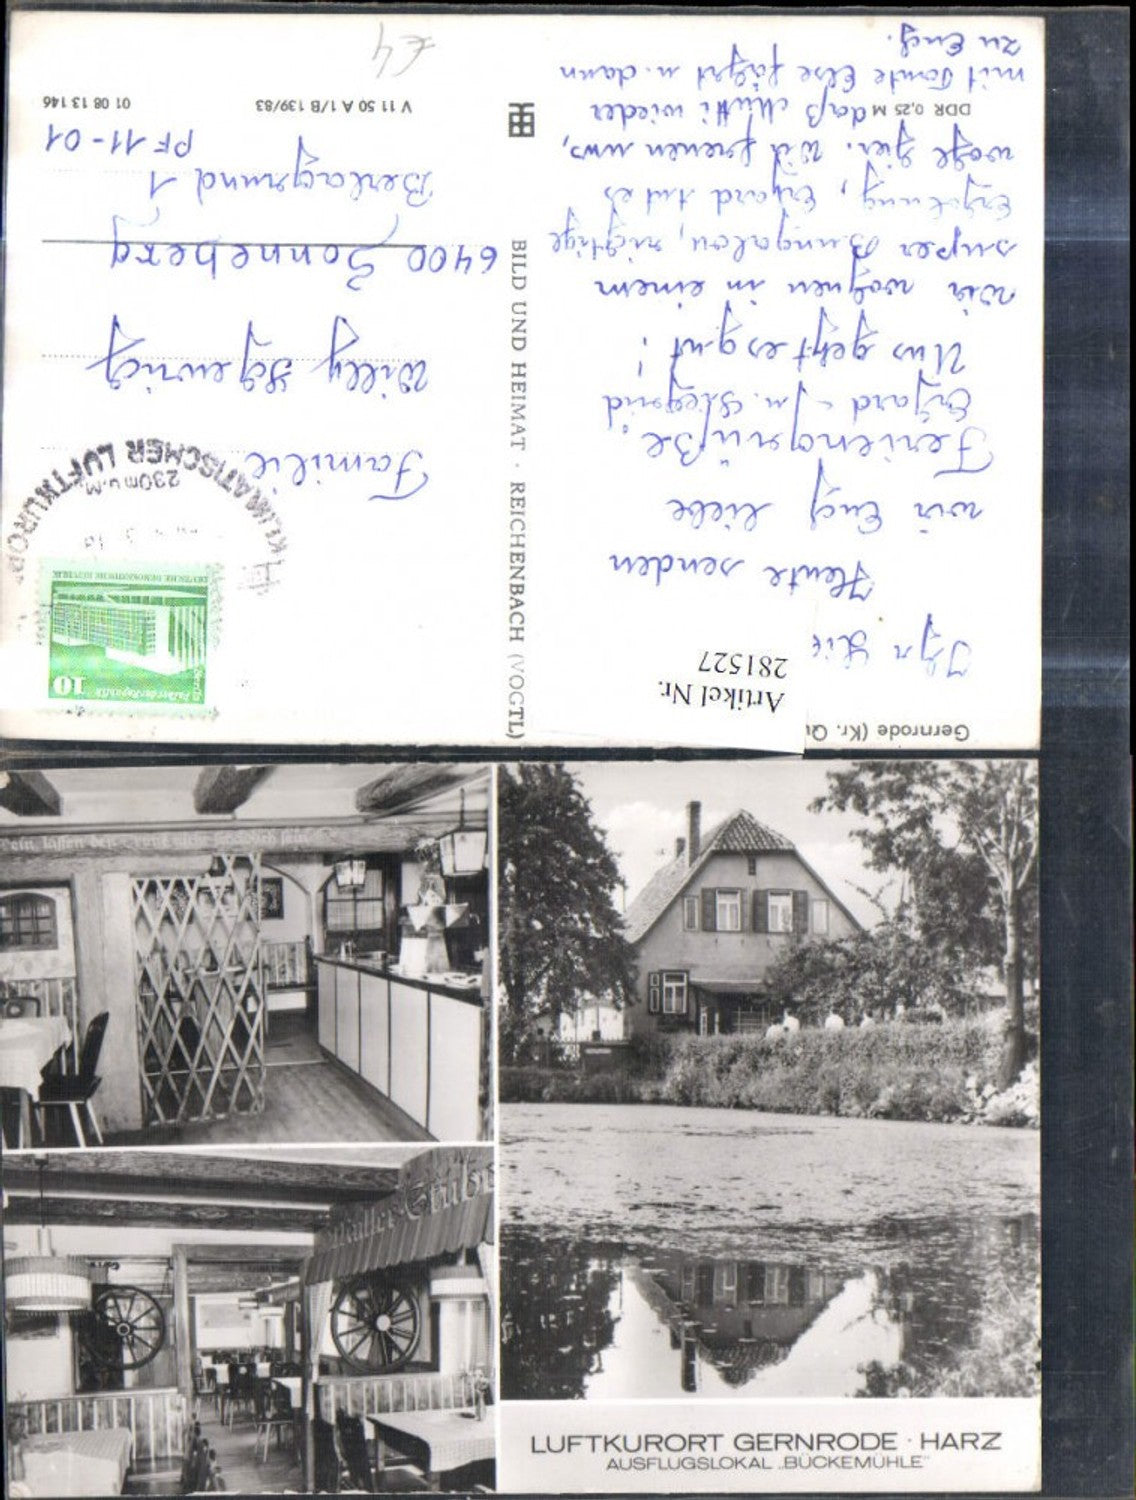 Gernrode (Kr. Qu
Artikel Nr.
281527
Ihr Lie
Heute senden
wir Euch liebe
Feriengrüße.
Erhard u. Siegrid
Uns geht es gut!
Wir wohnen in einem
super Bungalow, richtige
Erholung, Erhard tut es
wohl hier. Wir freuen uns,
daß Mutti wieder
mit Tante Else fährt u. dann
zu Euch.
DDR 0,25 M
BILD UND HEIMAT · REICHENBACH (VOGTL)
10
DEUTSCHE DEMOKRATISCHE REPUBLIK
KLIMATISCHER LUFTKURORT
230m ü.M.
Familie
Willy
6400 Sonneberg
1
PF 11-01
V 11 50 A 1/B 139/83
01 08 13 146
£4
ein, lassen den
LUFTKURORT GERNRODE · HARZ
AUSFLUGSLOKAL „BÜCKEMÜHLE“